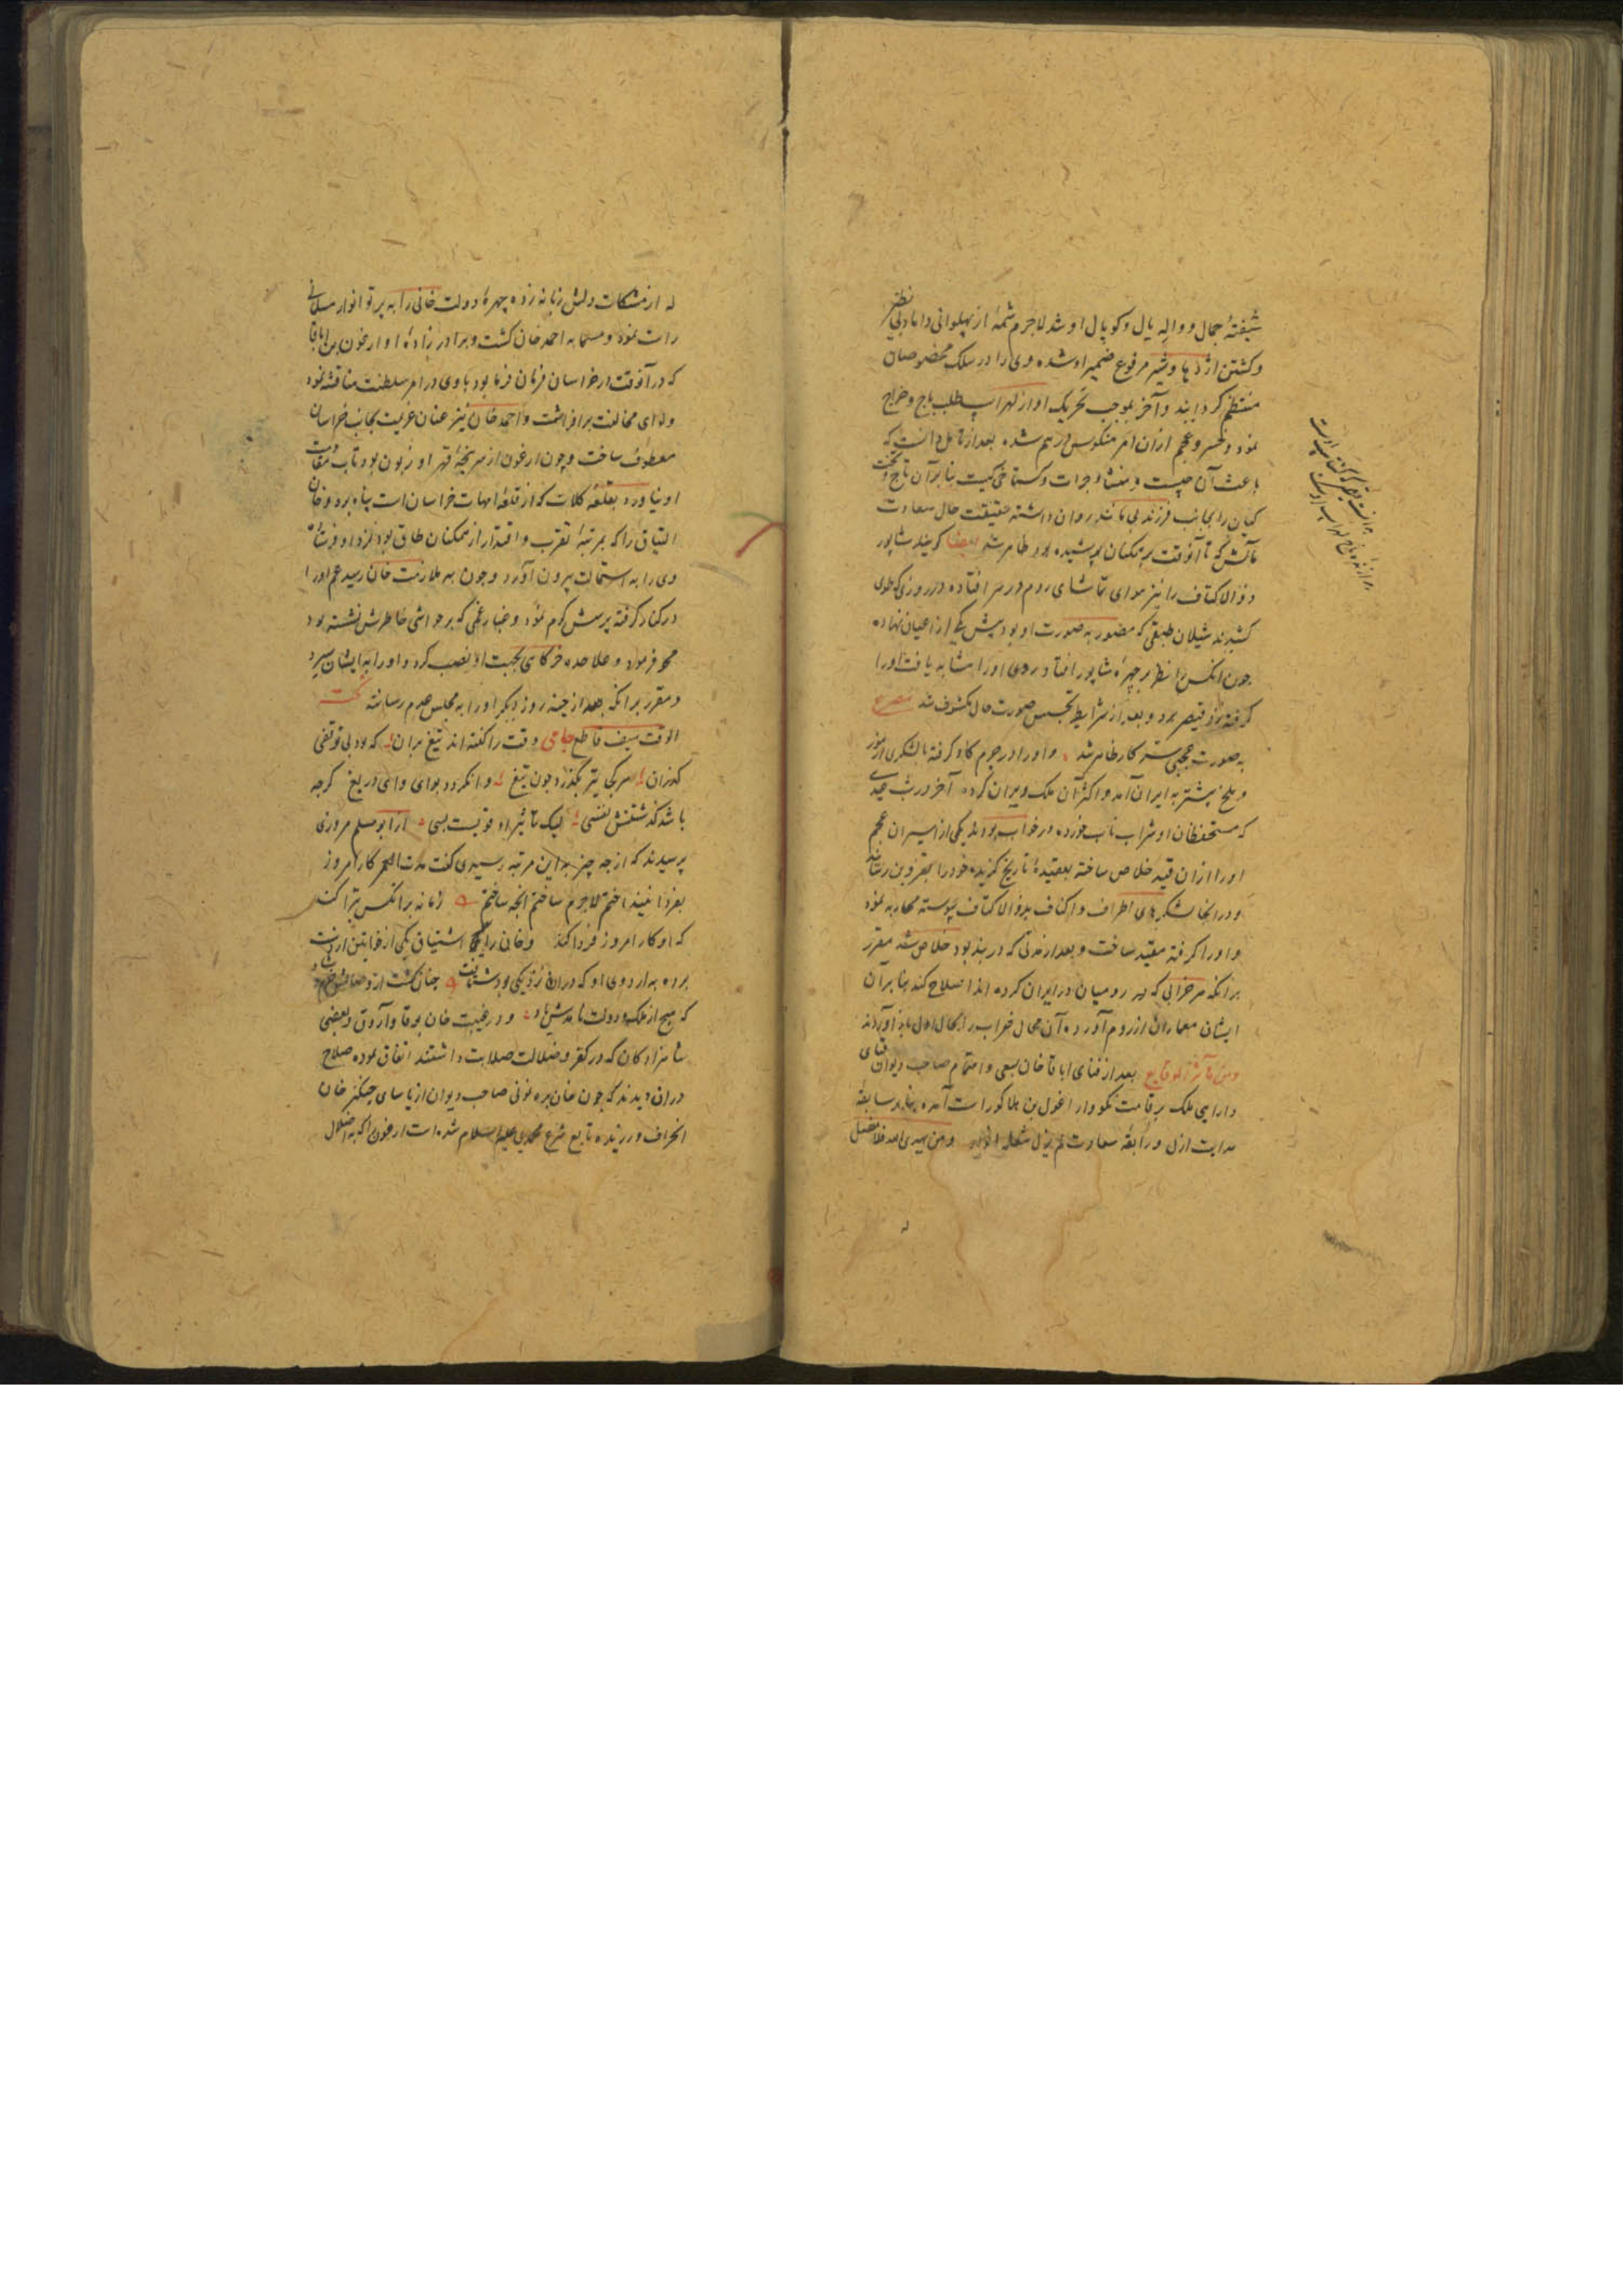 شیفتهٔ جمال و واله یال و کوپال او شد لاجرم شمهٔ از پهلوانی داماد بی نظیر
و کشتن اژدها و شیر مرفوع ضمیر او شده وی را در سلک مخصوصان
منتظم گردانید و آخر بموجب تحریک او از لهراسب طلب باج و خراج
نمود و خسرو عجم ازان امر منکوس درهم شده بعد از تامل دانست که
باعث آن چیست و منشاء جرات و گستاخی کیست بنا بران تاج و تخت
کیان را بجانب فرزند بی مانند روان داشته حقیقت حال سعادت
مآلش که تا آنوقت بر همکنان پوشیده بود ظاهر شد ایضا گویند شاپور
ذوالاکتاف را نیز هوای تماشای روم در سر افتاده در روزی که طوی
کشیدند شیلان طبقی که مصور به صورت او بود پیش یکی از اعیان نهاده
چون آنکس را نظر بر چهرهٔ شاپور افتاد و روی او را مشابه یافت او را
گرفته نزد قیصر برد و بعد از شرایط تجسس صورت حال مکشوف شد مصرع
به صورت عجبی ستر کار ظاهر شد و او را در چرم گاو گرفته با لشکری از مور
و ملخ بیشتر به ایران آمد و اکثر آن ملک ویران کرده آخر در شب عیدی
که مستحفظان او شراب ناب خورده در خواب بودند یکی از اسیران عجم
او را ازان قید خلاص ساخته بعقیدهٔ تاریخ گزیده خود را بقزوین رساند
و در انجا لشکرهای اطراف و اکناف بذوالاکتاف پیوسته محاربه نمود
و او را گرفته مقید ساخت و بعد از مدتی که در بند بود خلاص شد مقرر
برانکه هر خرابی که رومیان در ایران کرده اند اصلاح کند بنا بران
ایشان معماران از روم آورده آن محال خراب را بحال اول باز آوردند
ومن مآثر الوقایع بعد از فنای اباقا خان بسعی و اهتمام صاحب دیوان قبای
دارایی ملک بر قامت نکودار اغول بن هلاکو راست آمده بنابر سابقهٔ
هدایت ازل و رابقهٔ سعادت لم یزل شعلهٔ انوار ومن یهدی الله فلا مضل
له از مشکات دلش زبانه زده چهرهٔ دولت خانی را به پرتو انوار مسلمانی
راست نمود و مسما به احمد خان گشت و برادر زادهٔ او ارغون بن اباقا
که در آنوقت در خراسان فرمان فرما بود با وی در امر سلطنت مناقشه نمود
و لوای مخالفت برافراشت و احمد خان نیز عنان عزیمت بجانب خراسان
معطوف ساخت و چون ارغون از سرپنجهٔ قهر او زبون بود تاب مقاومت
او نیاورد بقلعهٔ کلات که از قلعهٔ امهات خراسان است پناه برد و خان
الیناق را که بمرتبهٔ تقرب و اقتدار از همکنان طاق بود نزد او فرستاد
وی را به استمالت بیرون آورد و چون به ملازمت خان رسید عم او را
در کنار گرفته پرسش گرم نمود و غبار غمی که بر حواشی خاطرش نشسته بود
محو فرمود و علاحده خرگاهی بجهت او نصب کرد و او را به ایشان سپرد
و مقرر برانکه بعد از چند روز دیگر او را به مجلس عدم رسانند
الوقت سیف قاطع جامی وقت را گفته اند تیغ بران که بود بی توقفی
گذران سر کجا تیز بگذرد چون تیغ و انکرود بوای وای دریغ گرچه
باشد گذشتنش نفسی لیک تاثیر او قویست بسی از ابو مسلم مروزی
پرسیدند که از چه چیز بداین مرتبه رسیدی گفت مدت العمر کار امروز
بفردا نینداختم لاجرم ساختم آنچه ساختم زمانه بر آنکس تبرا کند
که او کار امروز فردا کند و خان را اشتیاق یکی از خواتین از دست
برده به اردوی او که دران نزدیکی بود شتافت چنان گشت از وصالش خرم و شاد
که هیچ از ملک و دولت نامدش یاد و در غیبت خان بوقا و آروق و بعضی
شاهزادگان که در کفر و ضلالت صلابت داشتند اتفاق نموده صلاح
دران دیدند که چون خان بره نمونی صاحب دیوان از یاسای چنگیز خان
انحراف ورزیده تابع شرع محمدی علیه السلام شده است ارغون را که به اضلال